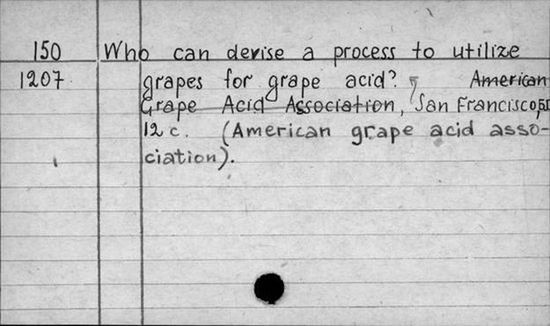 150 Who can devise a process to utilize
1207 grapes for grape acid? American
Grape Acid Association, San Francisco,
12 c. (American grape acid asso-
ciation).